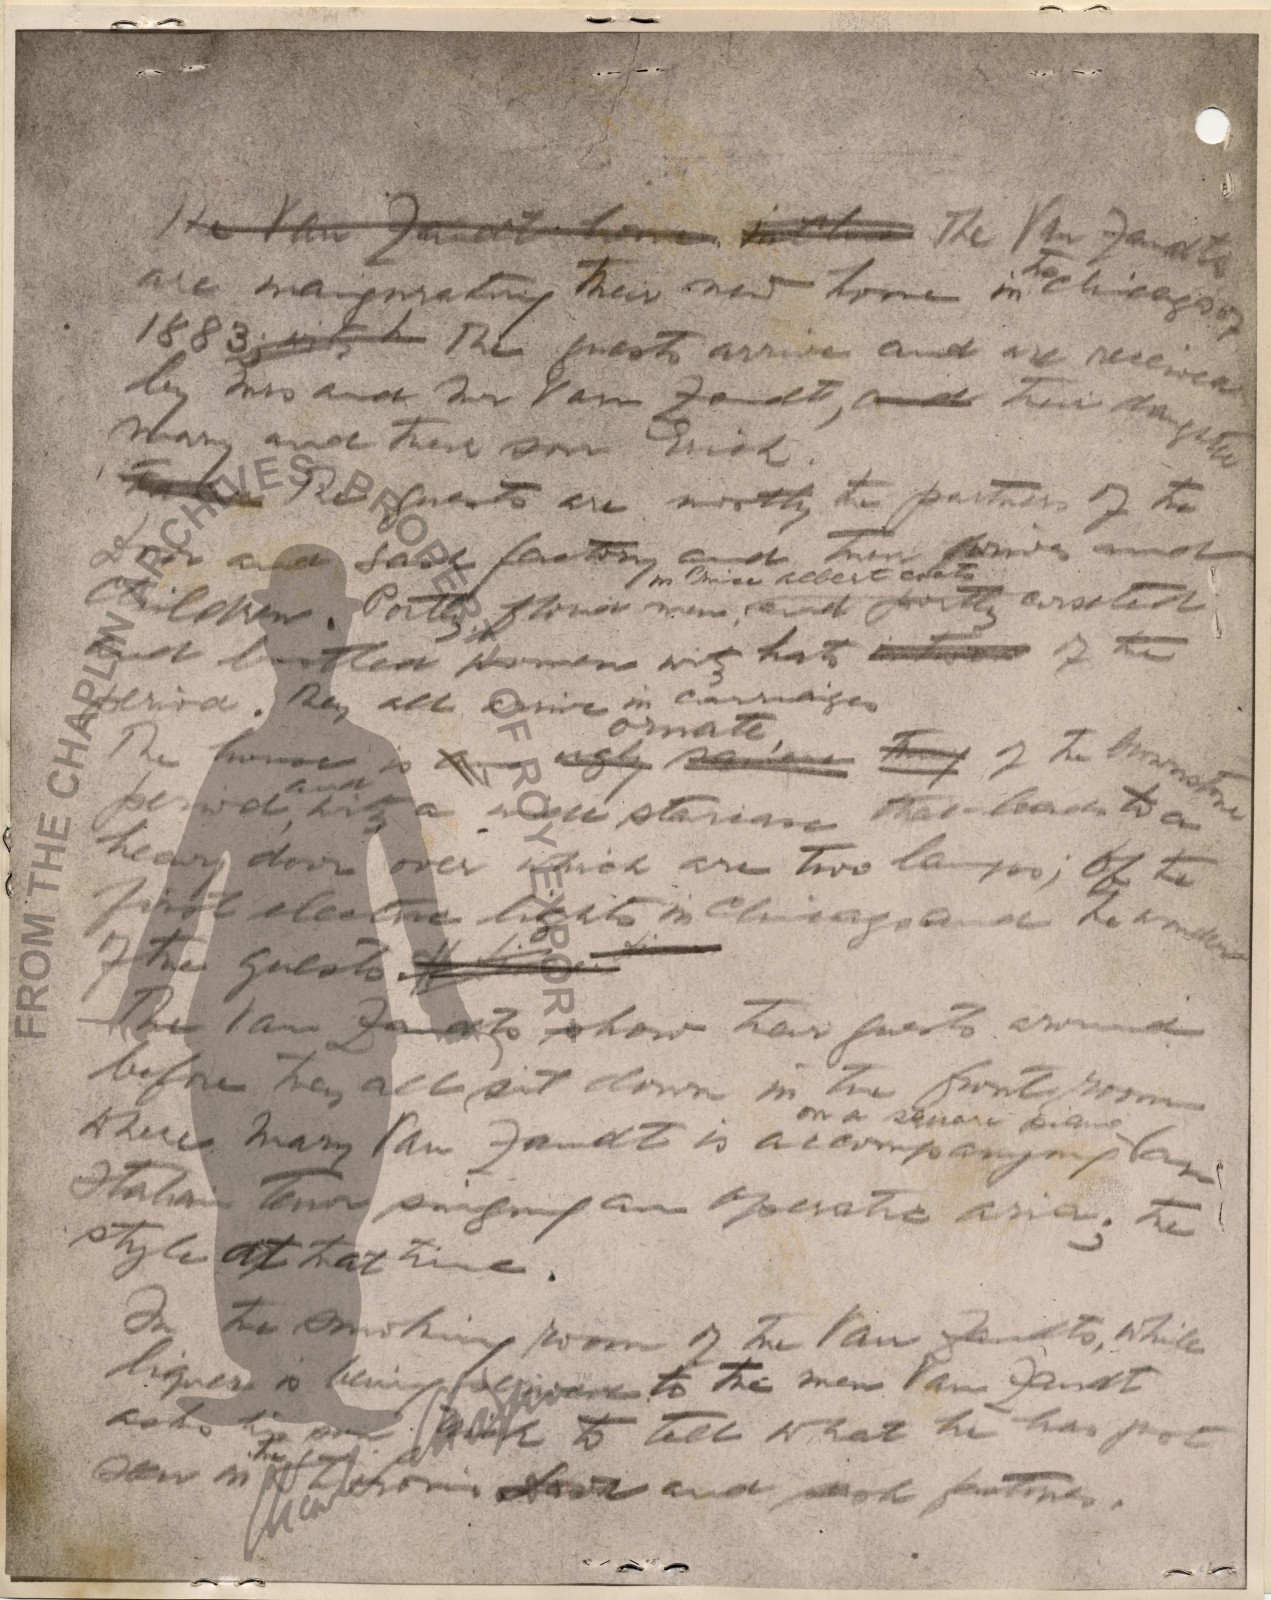 The Van Zandt home. The Van Zandts
are inaugurating their new home in the Chicago of
1883; with the guests arrive and are received
by Mrs and Mr Van Zandt, and their daughter
Mary and their son Erick.
The guests are mostly the partners of the
Door and Sash factory and their wives and
Children. Portly florid men, in Prince Albert coats and portly corseted
and bustled women with hats of the
period. They all arrive in carriages
The house is an ugly square ornate, of the brownstone
period, and with a wide staircase that leads to a
heavy door over which are two lamps; of the
first electric lights in Chicago and the wonder
of the guests.
The Van Zandts show their guests around
before they all sit down in the front room
where Mary Van Zandt is accompanying on a square piano an
Italian tenor singing an operatic aria; the
style at that time.
In the smoking room of the Van Zandts, while
liquer is being served to the men Van Zandt
asks his son Erick to tell what he has just
seen in the door and sash
FROM THE CHAPLIN ARCHIVES PROPERTY OF ROY EXPORT
Charles Chaplin
TM